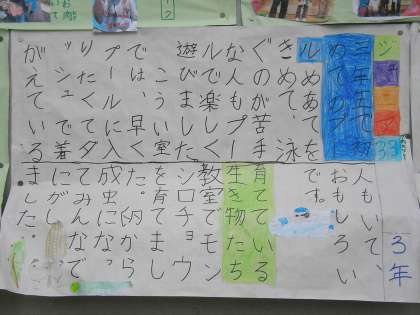 三年生で初
めてのプー
ルめあてを
きめて、泳
ぐのが苦手
な人もプー
ルで楽しく
遊びました
こうい室
では、早く
プールに入
りたくてダ
ッシュで着
がえている
3年
人もいて、
おもしろい
です。
育てている
生き物たち
教室でモン
シロチョウ
を育てまし
た。卵から
成虫になっ
てみんなで
にがし
ました。